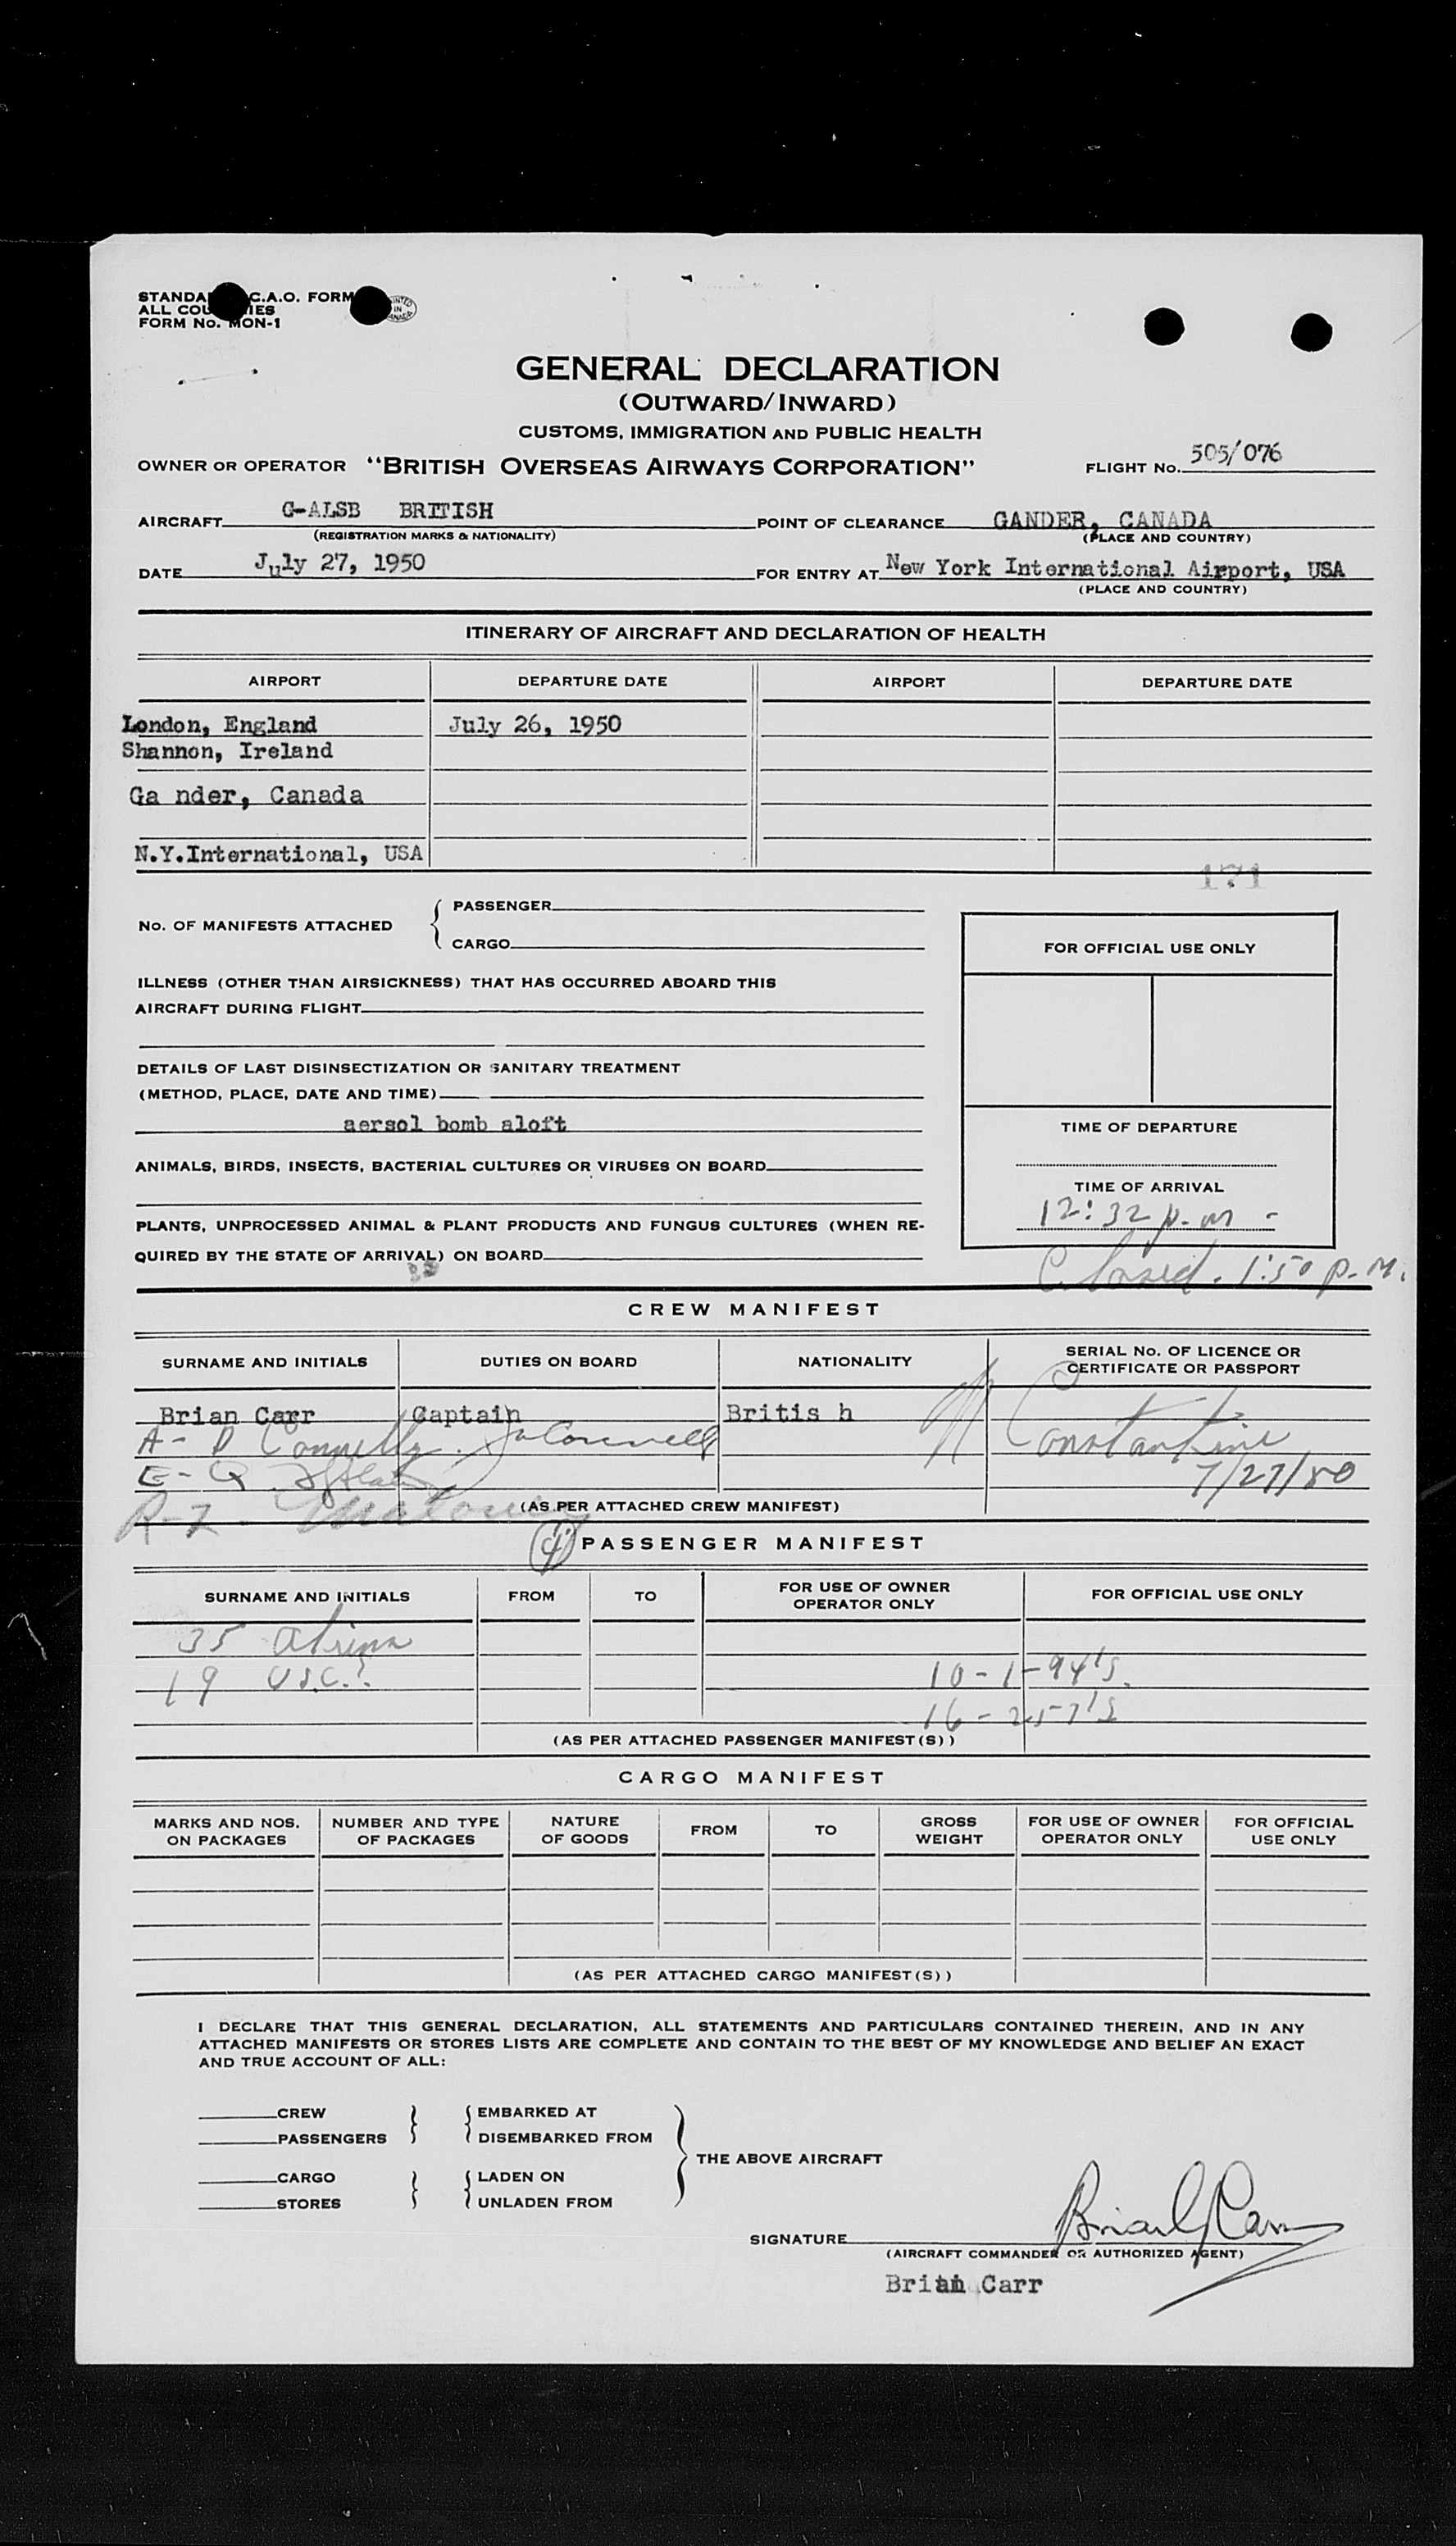 STANDA C.A.O. FORM
ALL COU IES
FORM No. MON-1
PRINTED IN CANADA
GENERAL DECLARATION
(OUTWARD/INWARD)
CUSTOMS, IMMIGRATION AND PUBLIC HEALTH
OWNER OR OPERATOR "BRITISH OVERSEAS AIRWAYS CORPORATION" FLIGHT No. 505/076
AIRCRAFT G-ALSB BRITISH POINT OF CLEARANCE GANDER, CANADA
(REGISTRATION MARKS & NATIONALITY) (PLACE AND COUNTRY)
DATE July 27, 1950 FOR ENTRY AT New York International Airport, USA
(PLACE AND COUNTRY)
ITINERARY OF AIRCRAFT AND DECLARATION OF HEALTH
AIRPORT DEPARTURE DATE AIRPORT DEPARTURE DATE
London, England July 26, 1950
Shannon, Ireland
Ga nder, Canada
N.Y.International, USA
171
No. OF MANIFESTS ATTACHED { PASSENGER
CARGO
FOR OFFICIAL USE ONLY
ILLNESS (OTHER THAN AIRSICKNESS) THAT HAS OCCURRED ABOARD THIS
AIRCRAFT DURING FLIGHT
DETAILS OF LAST DISINSECTIZATION OR SANITARY TREATMENT
(METHOD, PLACE, DATE AND TIME)
aersol bomb aloft
TIME OF DEPARTURE
ANIMALS, BIRDS, INSECTS, BACTERIAL CULTURES OR VIRUSES ON BOARD
TIME OF ARRIVAL
12:32 p.m -
PLANTS, UNPROCESSED ANIMAL & PLANT PRODUCTS AND FUNGUS CULTURES (WHEN RE-
QUIRED BY THE STATE OF ARRIVAL) ON BOARD
Closed. 1:50 P.M.
CREW MANIFEST
SURNAME AND INITIALS DUTIES ON BOARD NATIONALITY SERIAL No. OF LICENCE OR
CERTIFICATE OR PASSPORT
Brian Carr Captain Britis h
A- D Connelly Constantine
E- Q 7/27/50
R-7
(AS PER ATTACHED CREW MANIFEST)
PASSENGER MANIFEST
SURNAME AND INITIALS FROM TO FOR USE OF OWNER
OPERATOR ONLY FOR OFFICIAL USE ONLY
35 aliens
19 U.S.C. 10-1-94's
16-257's
(AS PER ATTACHED PASSENGER MANIFEST(S))
CARGO MANIFEST
MARKS AND NOS.
ON PACKAGES NUMBER AND TYPE
OF PACKAGES NATURE
OF GOODS FROM TO GROSS
WEIGHT FOR USE OF OWNER
OPERATOR ONLY FOR OFFICIAL
USE ONLY
(AS PER ATTACHED CARGO MANIFEST(S))
I DECLARE THAT THIS GENERAL DECLARATION, ALL STATEMENTS AND PARTICULARS CONTAINED THEREIN, AND IN ANY
ATTACHED MANIFESTS OR STORES LISTS ARE COMPLETE AND CONTAIN TO THE BEST OF MY KNOWLEDGE AND BELIEF AN EXACT
AND TRUE ACCOUNT OF ALL:
CREW EMBARKED AT
PASSENGERS DISEMBARKED FROM
THE ABOVE AIRCRAFT
CARGO LADEN ON
STORES UNLADEN FROM
SIGNATURE Brian Carr
(AIRCRAFT COMMANDER OR AUTHORIZED AGENT)
Brian Carr